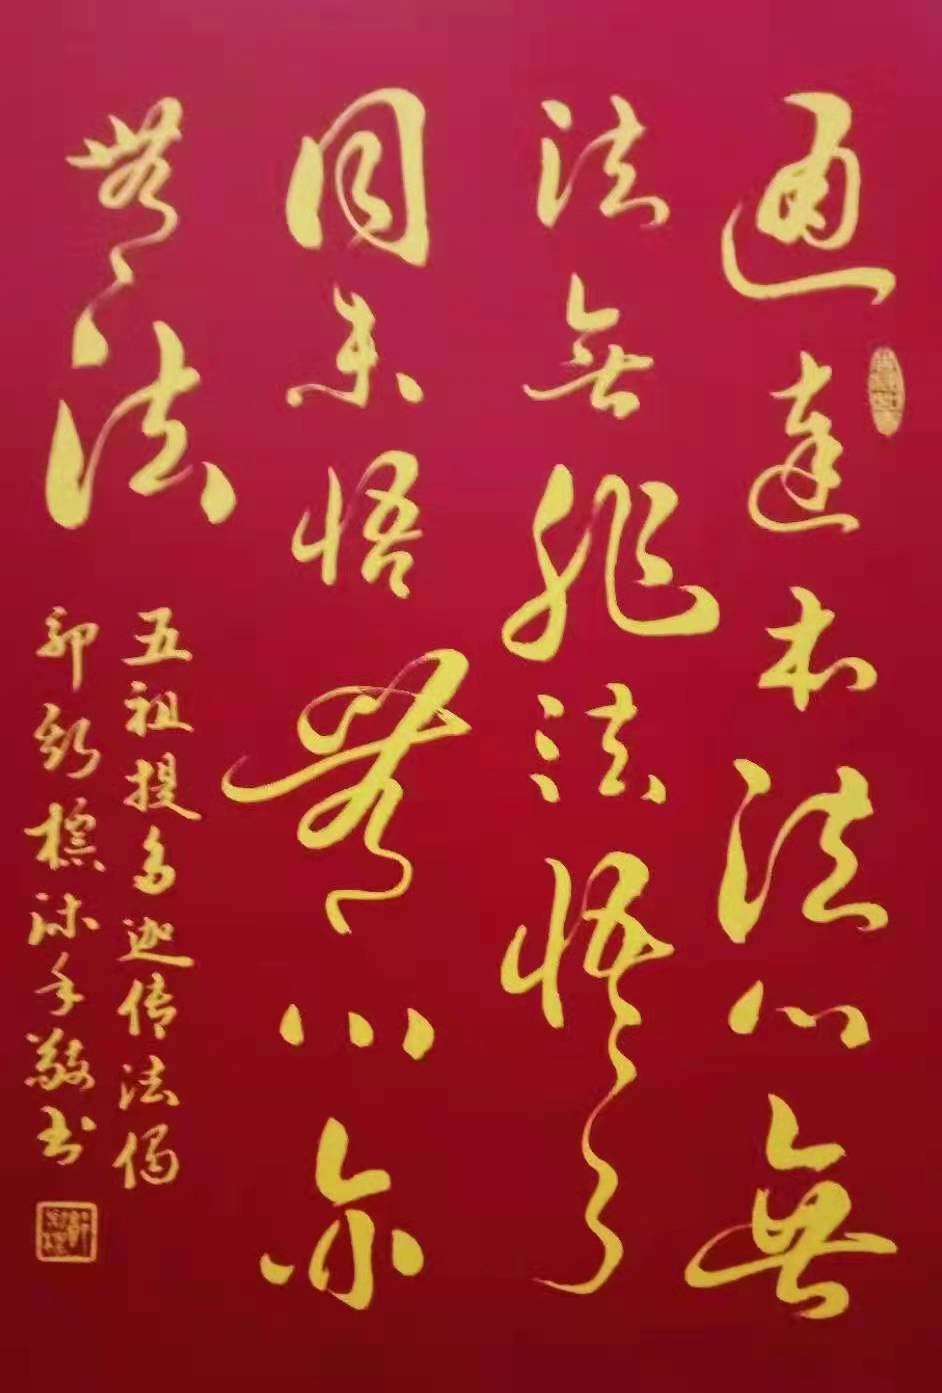 通達本法心無
法無非法悟了
同未悟無心亦
無法
五祖提多迦传法偈
郭標沐手敬书